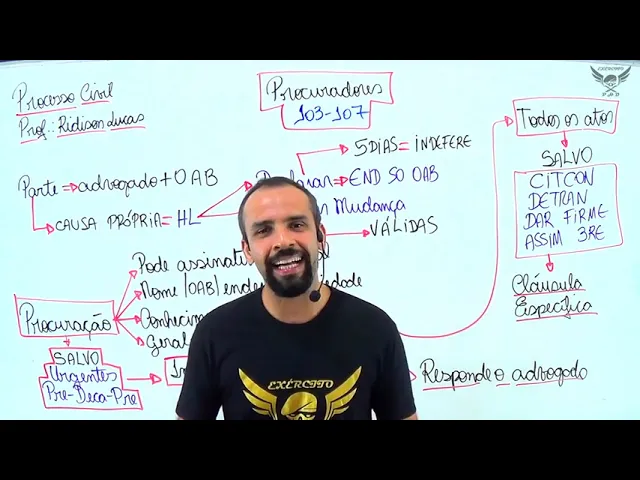 Processo Civil
Prof.: Ridison Lucas
Procuradores
103-107
Parte advogado + OAB
CAUSA PRÓPRIA = HL
5 DIAS = INDEFERE
END SO OAB
Mudança
VÁLIDAS
Procuração
Pode
Nome /OAB/
Geral
SALVO
Urgentes
Pre-Deca-Pre
Responde o advogado
Todos os atos
SALVO
CITCON
DETRAN
DAR FIRME
ASSIM 3RE
Cláusula
Específica
EXÉRCITO
EXÉRCITO